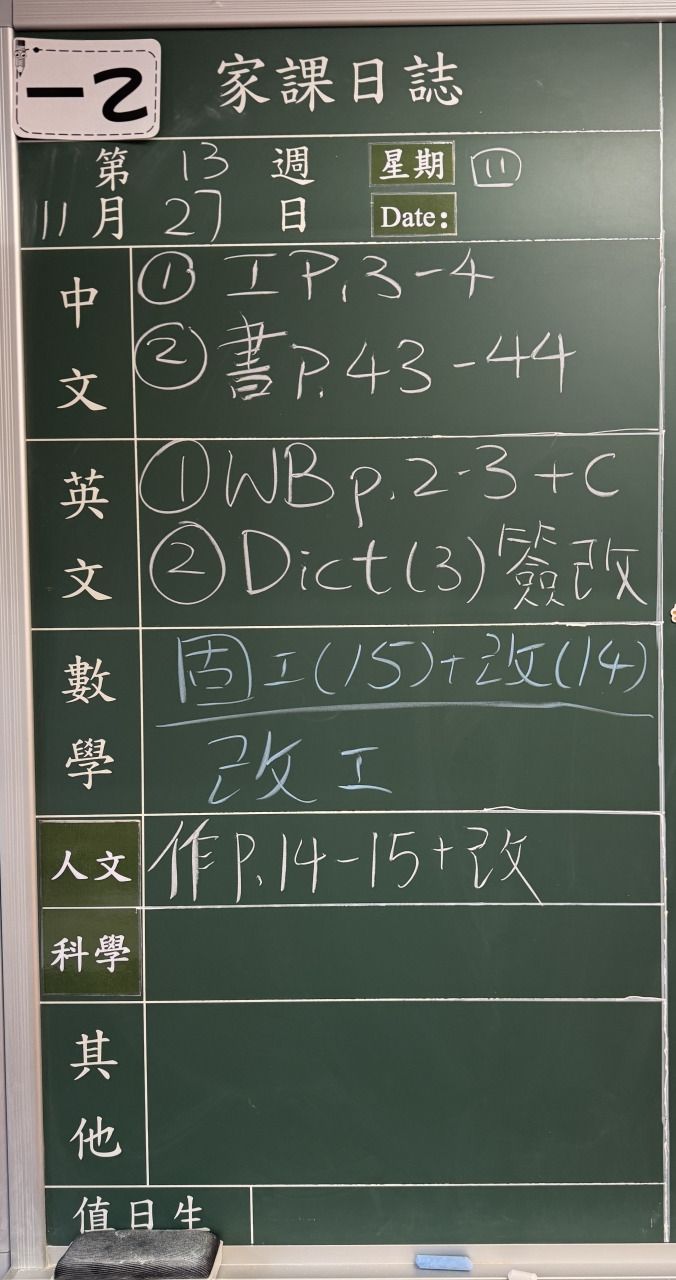 一乙
家課日誌
第 13 週 星期 四
11月 27 日 Date:
中文
① 工 P.3-4
② 書 P.43-44
英文
① WB p.2-3+C
② Dict(3)簽改
數學
固工(15)+改(14)
改工
人文 作P.14-15+改
科學
其他
值日生